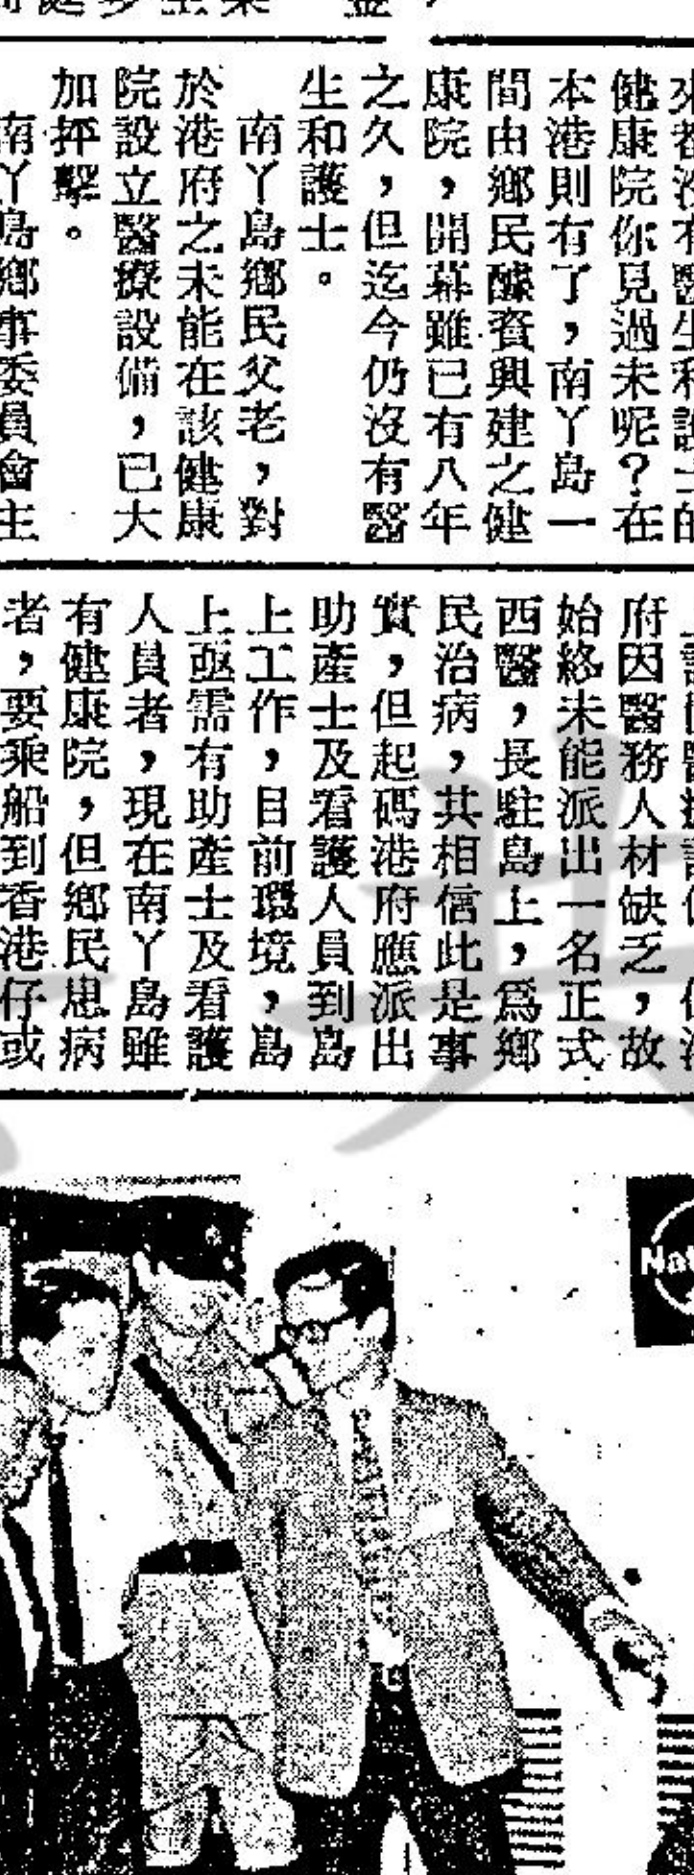 來都沒有醫生和護士的
健康院你見過未呢？在
本港則有了，南丫島一
間由鄉民醵資興建之健
康院，開幕雖已有八年
之久，但迄今仍沒有醫
生和護士。
南丫島鄉民父老，對
於港府之未能在該健康
院設立醫療設備，已大
加抨擊。
南丫島鄉事委員會主
府因醫務人材缺乏，故
始終未能派出一名正式
西醫，長駐島上，爲鄉
民治病，其相信此是事
實，但起碼港府應派出
助產士及看護人員到島
上工作，目前環境，島
上亟需有助產士及看護
人員者，現在南丫島雖
有健康院，但鄉民患病
者，要乘船到香港仔或
Nat